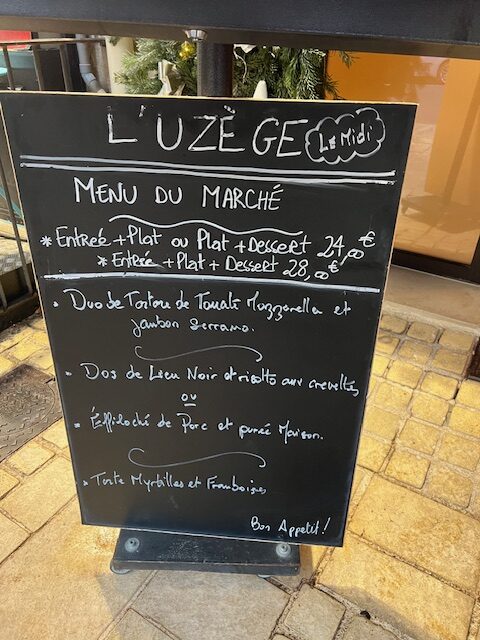 L'UZÈGE Le Midi
MENU DU MARCHÉ
* Entrée + Plat ou Plat + Dessert 24,00€
* Entrée + Plat + Dessert 28,00€
• Duo de Tortou de Tomate Mozzarella et
Jambon Serrano.
• Dos de Lieu Noir et risotto aux crevettes
ou
• Éffiloché de Porc et purée Maison.
• Tarte Myrtilles et Framboises
Bon Appetit!